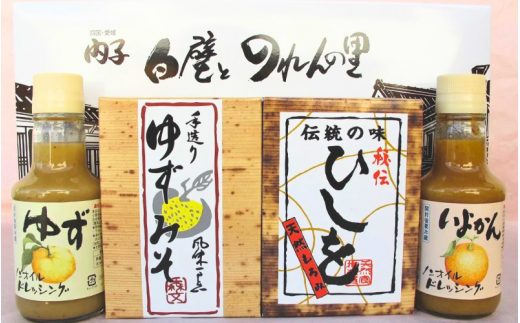 四国・愛媛
内子 白壁と のれんの里
手造り
ゆずみそ
森文
伝統の味
秘伝
ひしを
天然もろみ
ゆず
ノンオイル
ドレッシング
開封後要冷蔵
いよかん
ノンオイル
ドレッシング